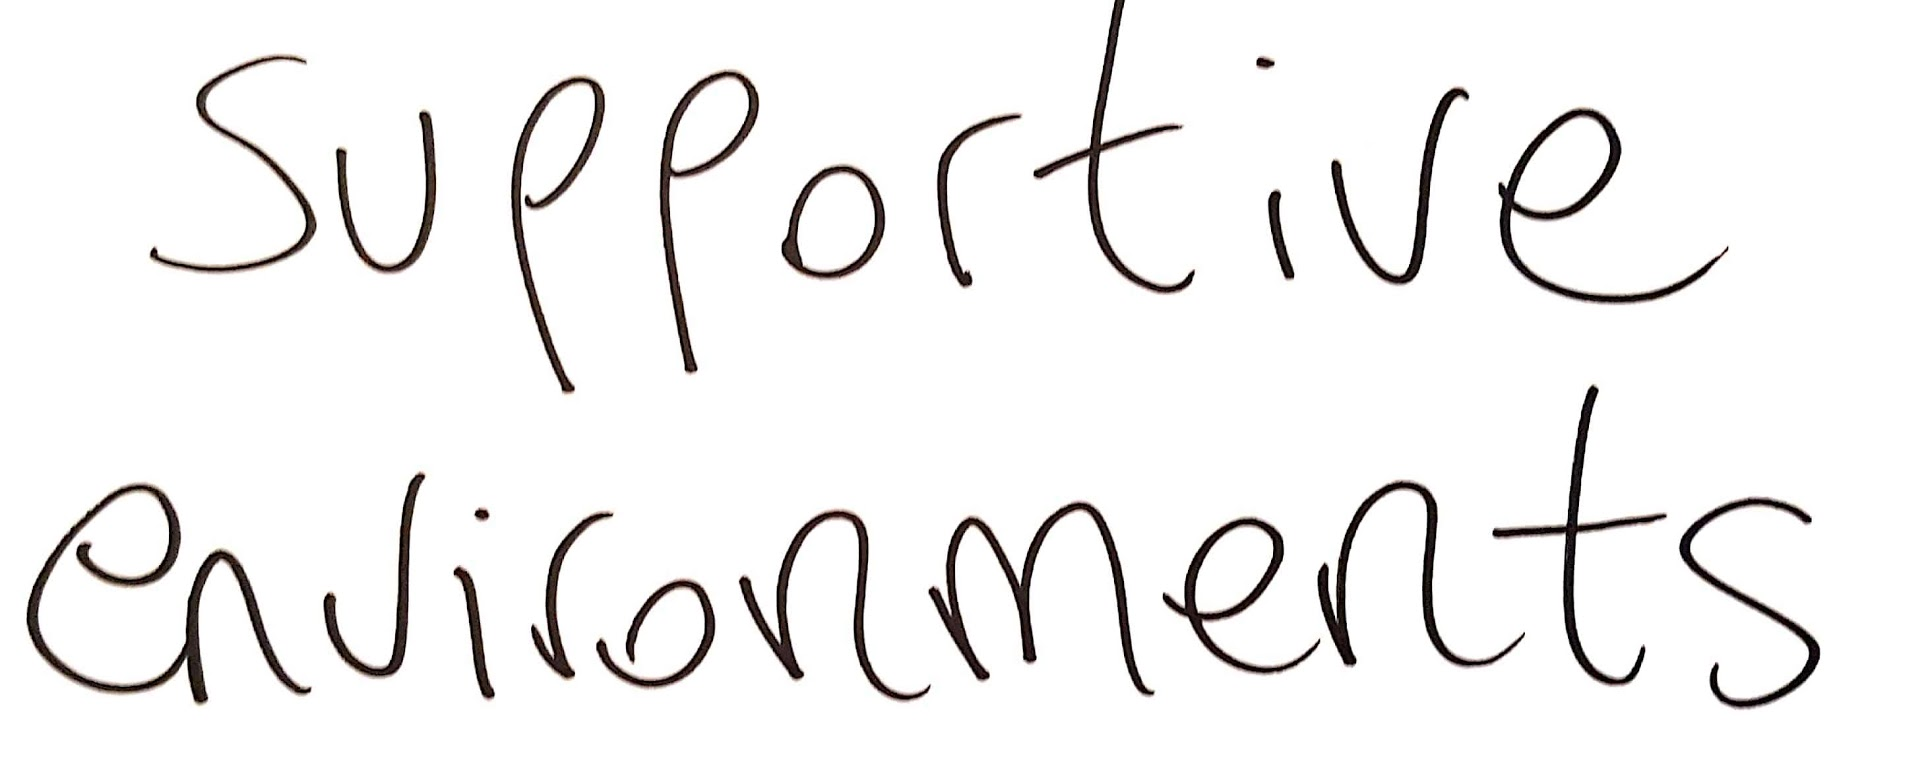 supportive
environments